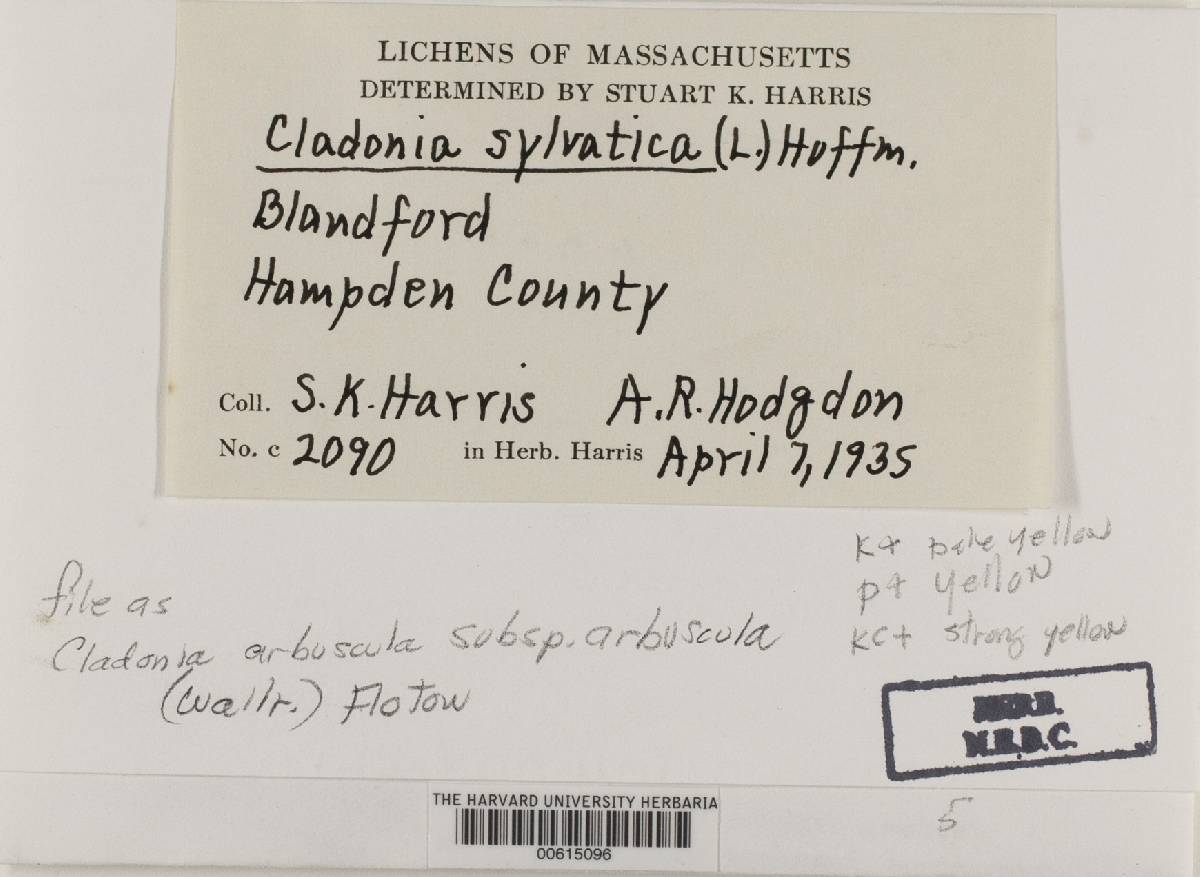 LICHENS OF MASSACHUSETTS
DETERMINED BY STUART K. HARRIS
Cladonia sylvatica (L.) Hoffm.
Blandford
Hampden County
Coll. S. K. Harris A. R. Hodgdon
No. c 2090 in Herb. Harris April 7, 1935
K+ pale yellow
P+ yellow
KC+ strong yellow
file as
Cladonia arbuscula subsp. arbuscula
(Wallr.) Flotow
HERB.
N.E.B.C.
THE HARVARD UNIVERSITY HERBARIA
00615096
5